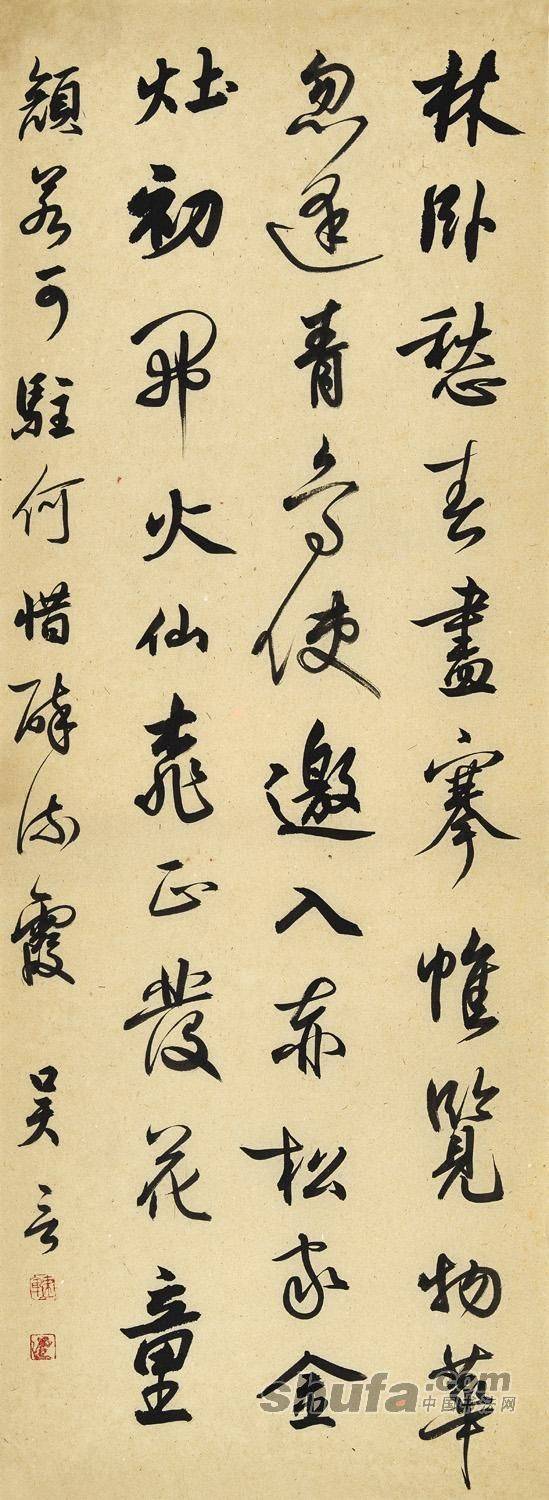 林卧愁春盡搴帷覽物華
忽逢青鳥使邀入赤松家金
灶初開火仙桃正發花童
顏若可駐何惜醉流霞
吳言
shufa.com
中国书法网